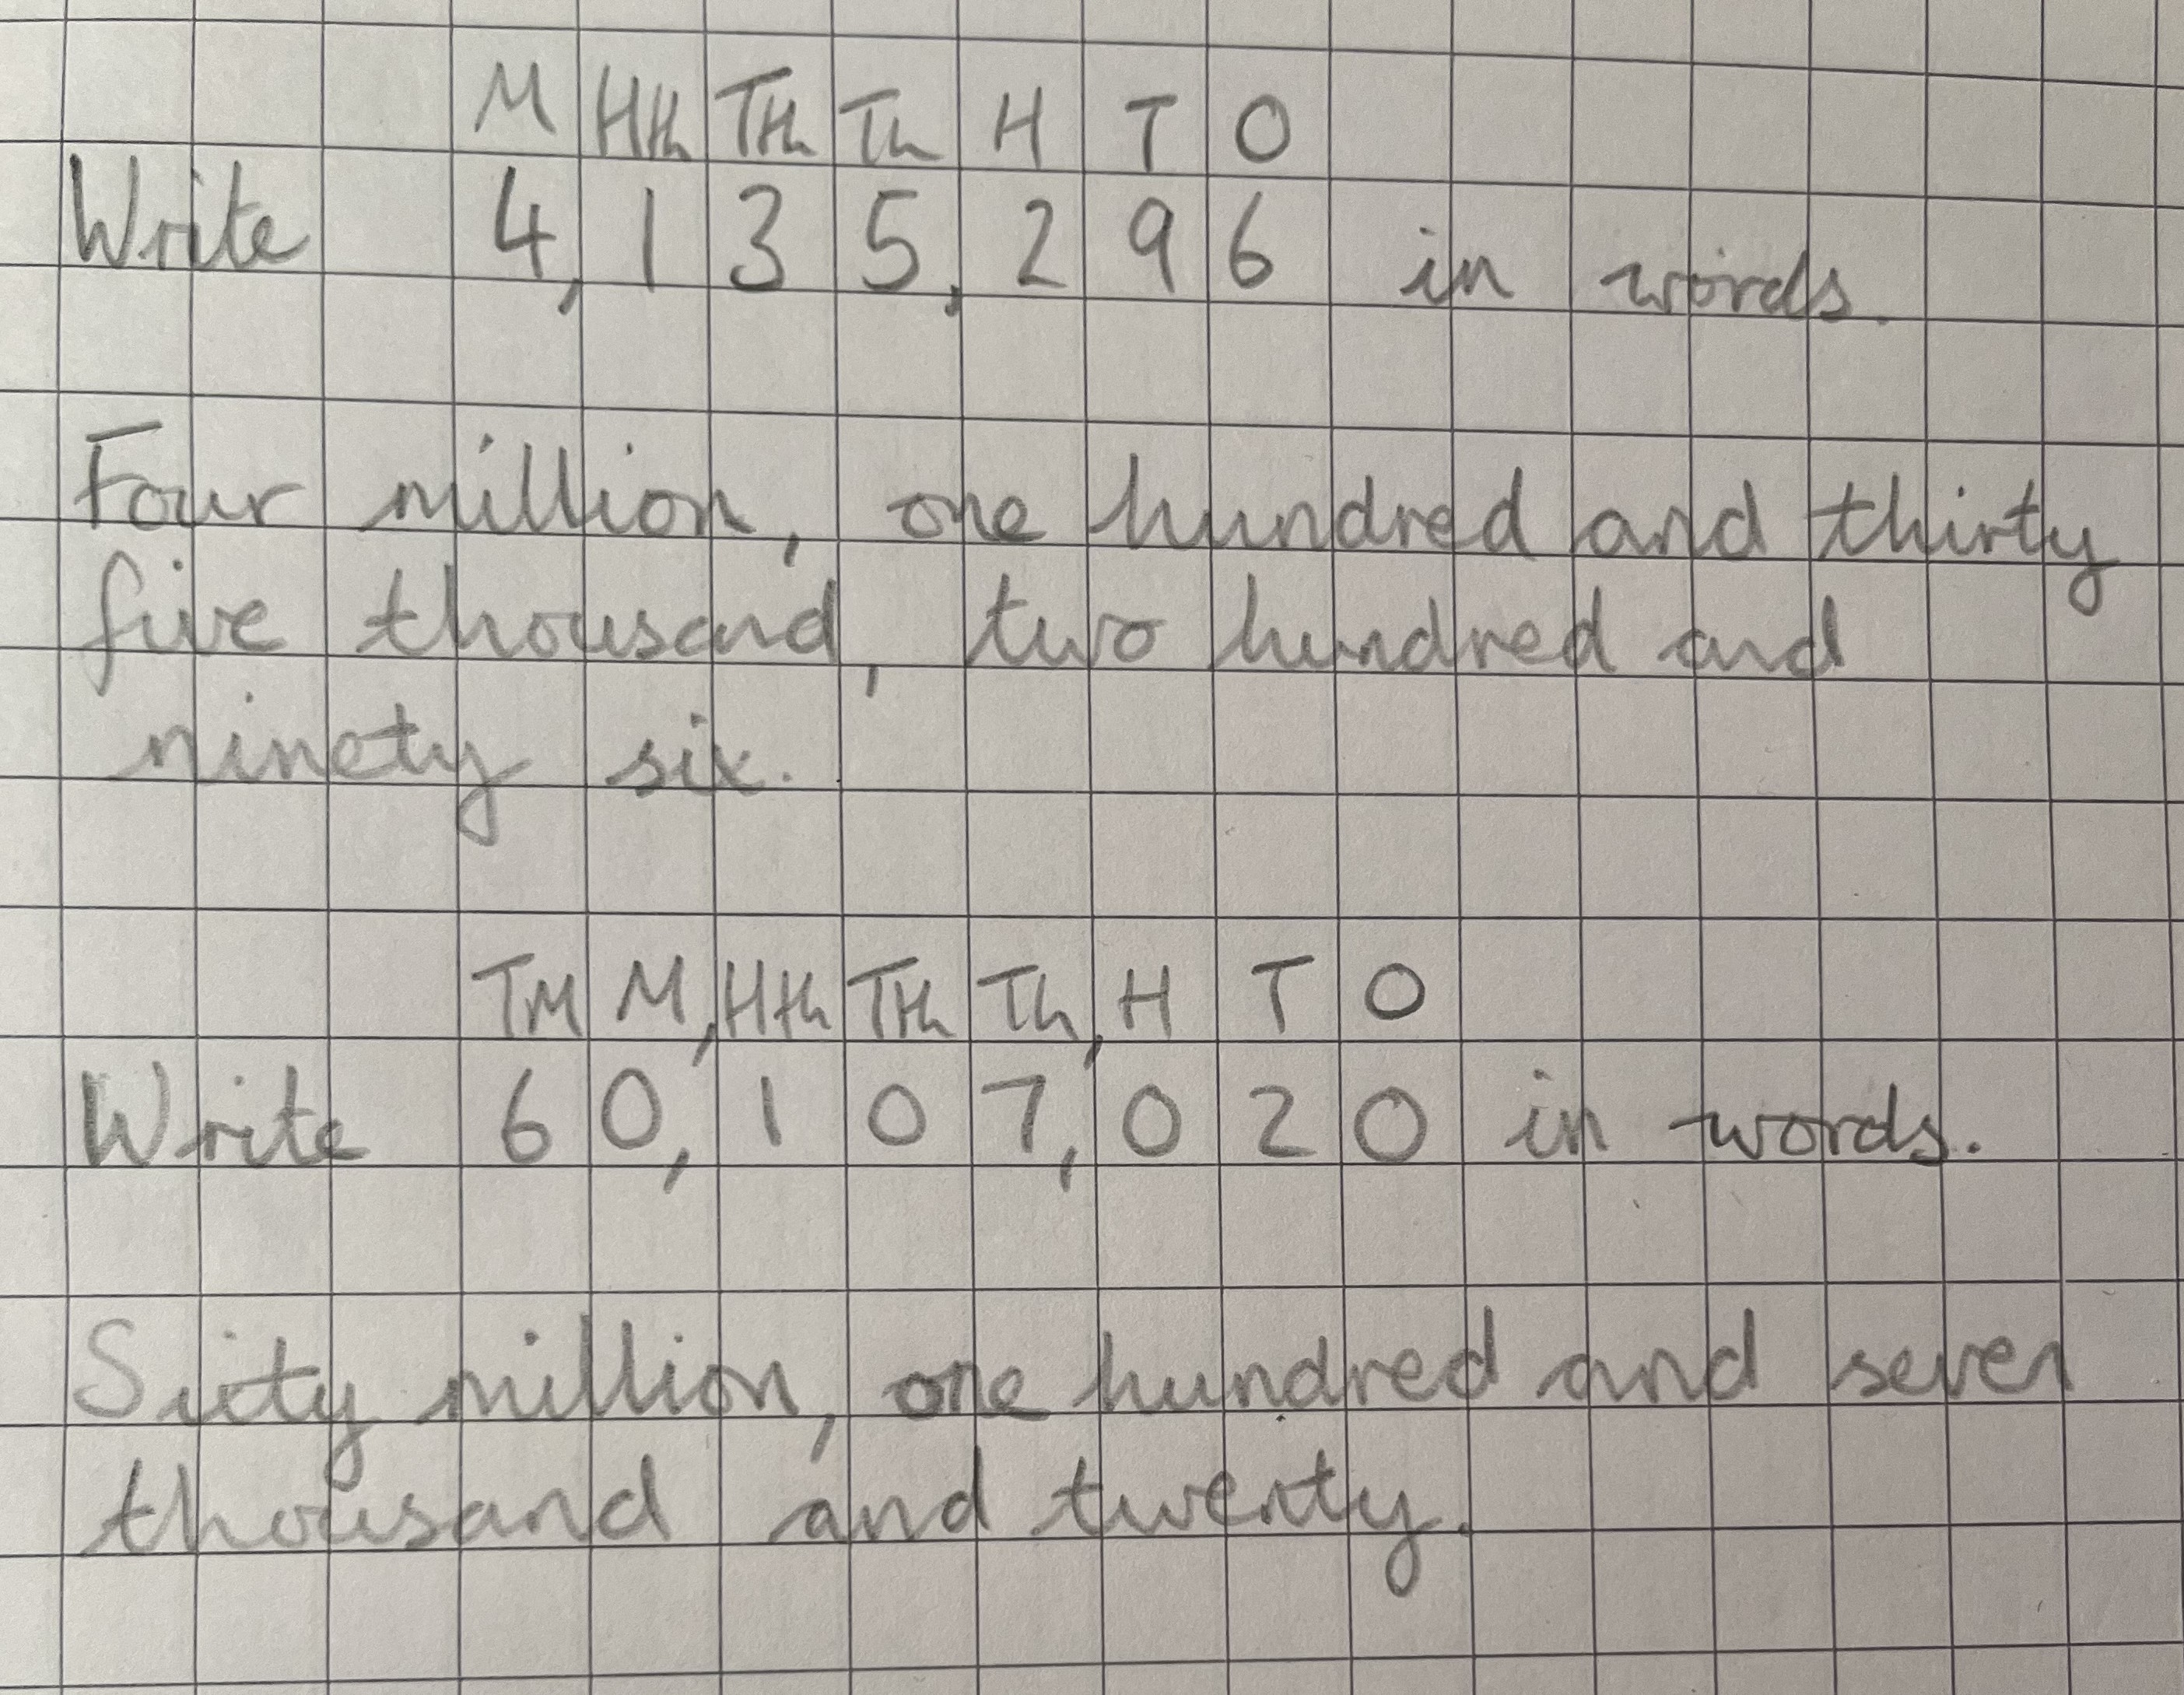 M HTh TTh Th H T O
Write 4,135,296 in words.
Four million, one hundred and thirty
five thousand, two hundred and
ninety six.
TM M, HTh TTh Th, H T O
Write 60,107,020 in words.
Sixty million, one hundred and seven
thousand and twenty.